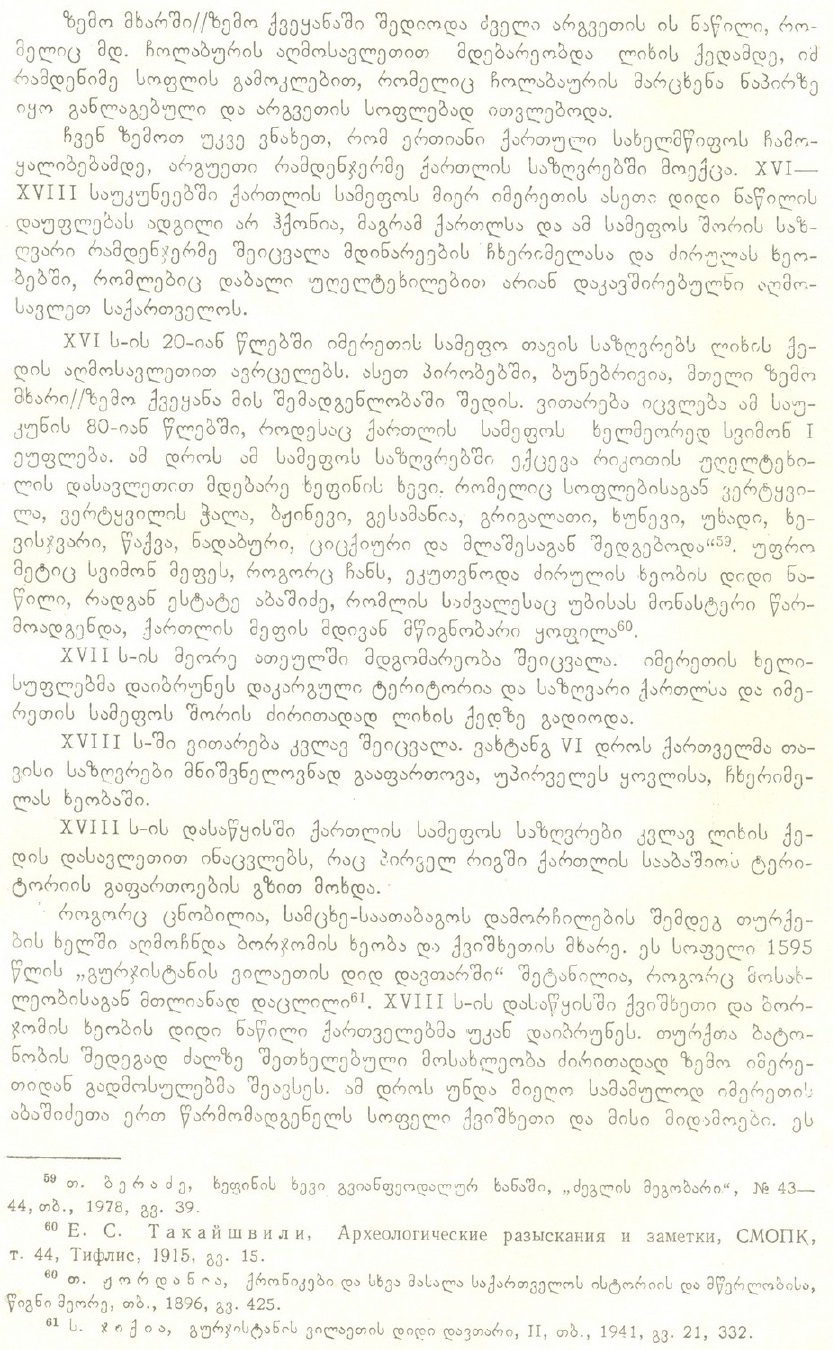 ზემო მხარში//ზემო ქვეყანაში შედიოდა ძველი არგვეთის ის ნაწილი, რო-
მელიც მდ. ჩოლაბურის აღმოსავლეთით მდებარეობდა ლიხის ქედამდე, იმ
რამდენიმე სოფლის გამოკლებით, რომელიც ჩოლაბაურის მარცხენა ნაპირზე
იყო განლაგებული და არგვეთის სოფლებად ითვლებოდა.
ჩვენ ზემოთ უკვე ვნახეთ, რომ ერთიანი ქართული სახელმწიფოს ჩამო-
ყალიბებამდე, არგუეთი რამდენჯერმე ქართლის საზღვრებში მოექცა. XVI—
XVIII საუკუნეებში ქართლის სამეფოს მიერ იმერეთის ასეთი დიდი ნაწილის
დაუფლებას ადგილი არ ჰქონია, მაგრამ ქართლსა და ამ სამეფოს შორის საზ-
ღვარი რამდენჯერმე შეიცვალა მდინარეების ჩხერიმელასა და ძირულას ხეო-
ბებში, რომლებიც დაბალი უღელტეხილებით არიან დაკავშირებულნი აღმო-
სავლეთ საქართველოს.
XVI ს-ის 20-იან წლებში იმერეთის სამეფო თავის საზღვრებს ლიხის ქე-
დის აღმოსავლეთით ავრცელებს. ასეთ პირობებში, ბუნებრივია, მთელი ზემო
მხარი//ზემო ქვეყანა მის შემადგენლობაში შედის. ვითარება იცვლება ამ საუ-
კუნის 80-იან წლებში, როდესაც ქართლის სამეფოს ხელმეორედ სვიმონ I
ეუფლება. ამ დროს ამ სამეფოს საზღვრებში ექცევა რიკოთის უღელტეხი-
ლის დასავლეთით მდებარე ხეფინის ხევი, რომელიც სოფლებისაგან ვერტყვი-
ლა, ვერტყვილის ჭალა, ბჟინევი, გესამანია, გრიგალათი, ხუნევი, უხადი, ხე-
ვისჯვარი, წაქვა, ნადაბური, ციცქიური და მლაშესაგან შედგებოდა“⁵⁹. უფრო
მეტიც სვიმონ მეფეს, როგორც ჩანს, ეკუთვნოდა ძირულის ხეობის დიდი ნა-
წილი, რადგან ესტატე აბაშიძე, რომლის საძვალესაც უბისას მონასტერი წარ-
მოადგენდა, ქართლის მეფის მდივან მწიგნობარი ყოფილა⁶⁰.
XVII ს-ის მეორე ათეულში მდგომარეობა შეიცვალა. იმერეთის ხელი-
სუფლებმა დაიბრუნეს დაკარგული ტერიტორია და საზღვარი ქართლსა და იმე-
რეთის სამეფოს შორის ძირითადად ლიხის ქედზე გადიოდა.
XVIII ს-ში ვითარება კვლავ შეიცვალა. ვახტანგ VI დროს ქართველმა თა-
ვისი საზღვრები მნიშვნელოვნად გააფართოვა, უპირველეს ყოვლისა, ჩხერიმე-
ლას ხეობაში.
XVIII ს-ის დასაწყისში ქართლის სამეფოს საზღვრები კვლავ ლიხის ქე-
დის დასავლეთით ინაცვლებს, რაც პირველ რიგში ქართლის სააბაშიოს ტერი-
ტორიის გაფართოების გზით მოხდა.
როგორც ცნობილია, სამცხე-საათაბაგოს დამორჩილების შემდეგ თურქე-
ბის ხელში აღმოჩნდა ბორჯომის ხეობა და ქვიშხეთის მხარე. ეს სოფელი 1595
წლის „გურჯისტანის ვილაეთის დიდ დავთარში“ შეტანილია, როგორც მოსახ-
ლეობისაგან მთლიანად დაცლილი⁶¹. XVIII ს-ის დასაწყისში ქვიშხეთი და ბორ-
ჯომის ხეობის დიდი ნაწილი ქართველებმა უკან დაიბრუნეს. თურქთა ბატო-
ნობის შედეგად ძალზე შეთხელებული მოსახლეობა ძირითადად ზემო იმერე-
თიდან გადმოსულებმა შეავსეს. ამ დროს უნდა მიეღო სამამულოდ იმერეთის
აბაშიძეთა ერთ წარმომადგენელს სოფელი ქვიშხეთი და მისი მიდამოები. ეს
⁵⁹ თ. ბერაძე, ხეფინის ხევი გვიანფეოდალურ ხანაში, „ძეგლის მეგობარი“, № 43—
44, თბ., 1978, გვ. 39.
⁶⁰ Е. С. Такайшвили, Археологические разыскания и заметки, СМОПК,
т. 44, Тифлис, 1915, გვ. 15.
⁶⁰ თ. ჟორდანია, ქრონიკები და სხვა მასალა საქართველოს ისტორიის და მწერლობისა,
წიგნი მეორე, თბ., 1896, გვ. 425.
⁶¹ ს. ჯიქია, გურჯისტანის ვილაეთის დიდი დავთარი, II, თბ., 1941, გვ. 21, 332.